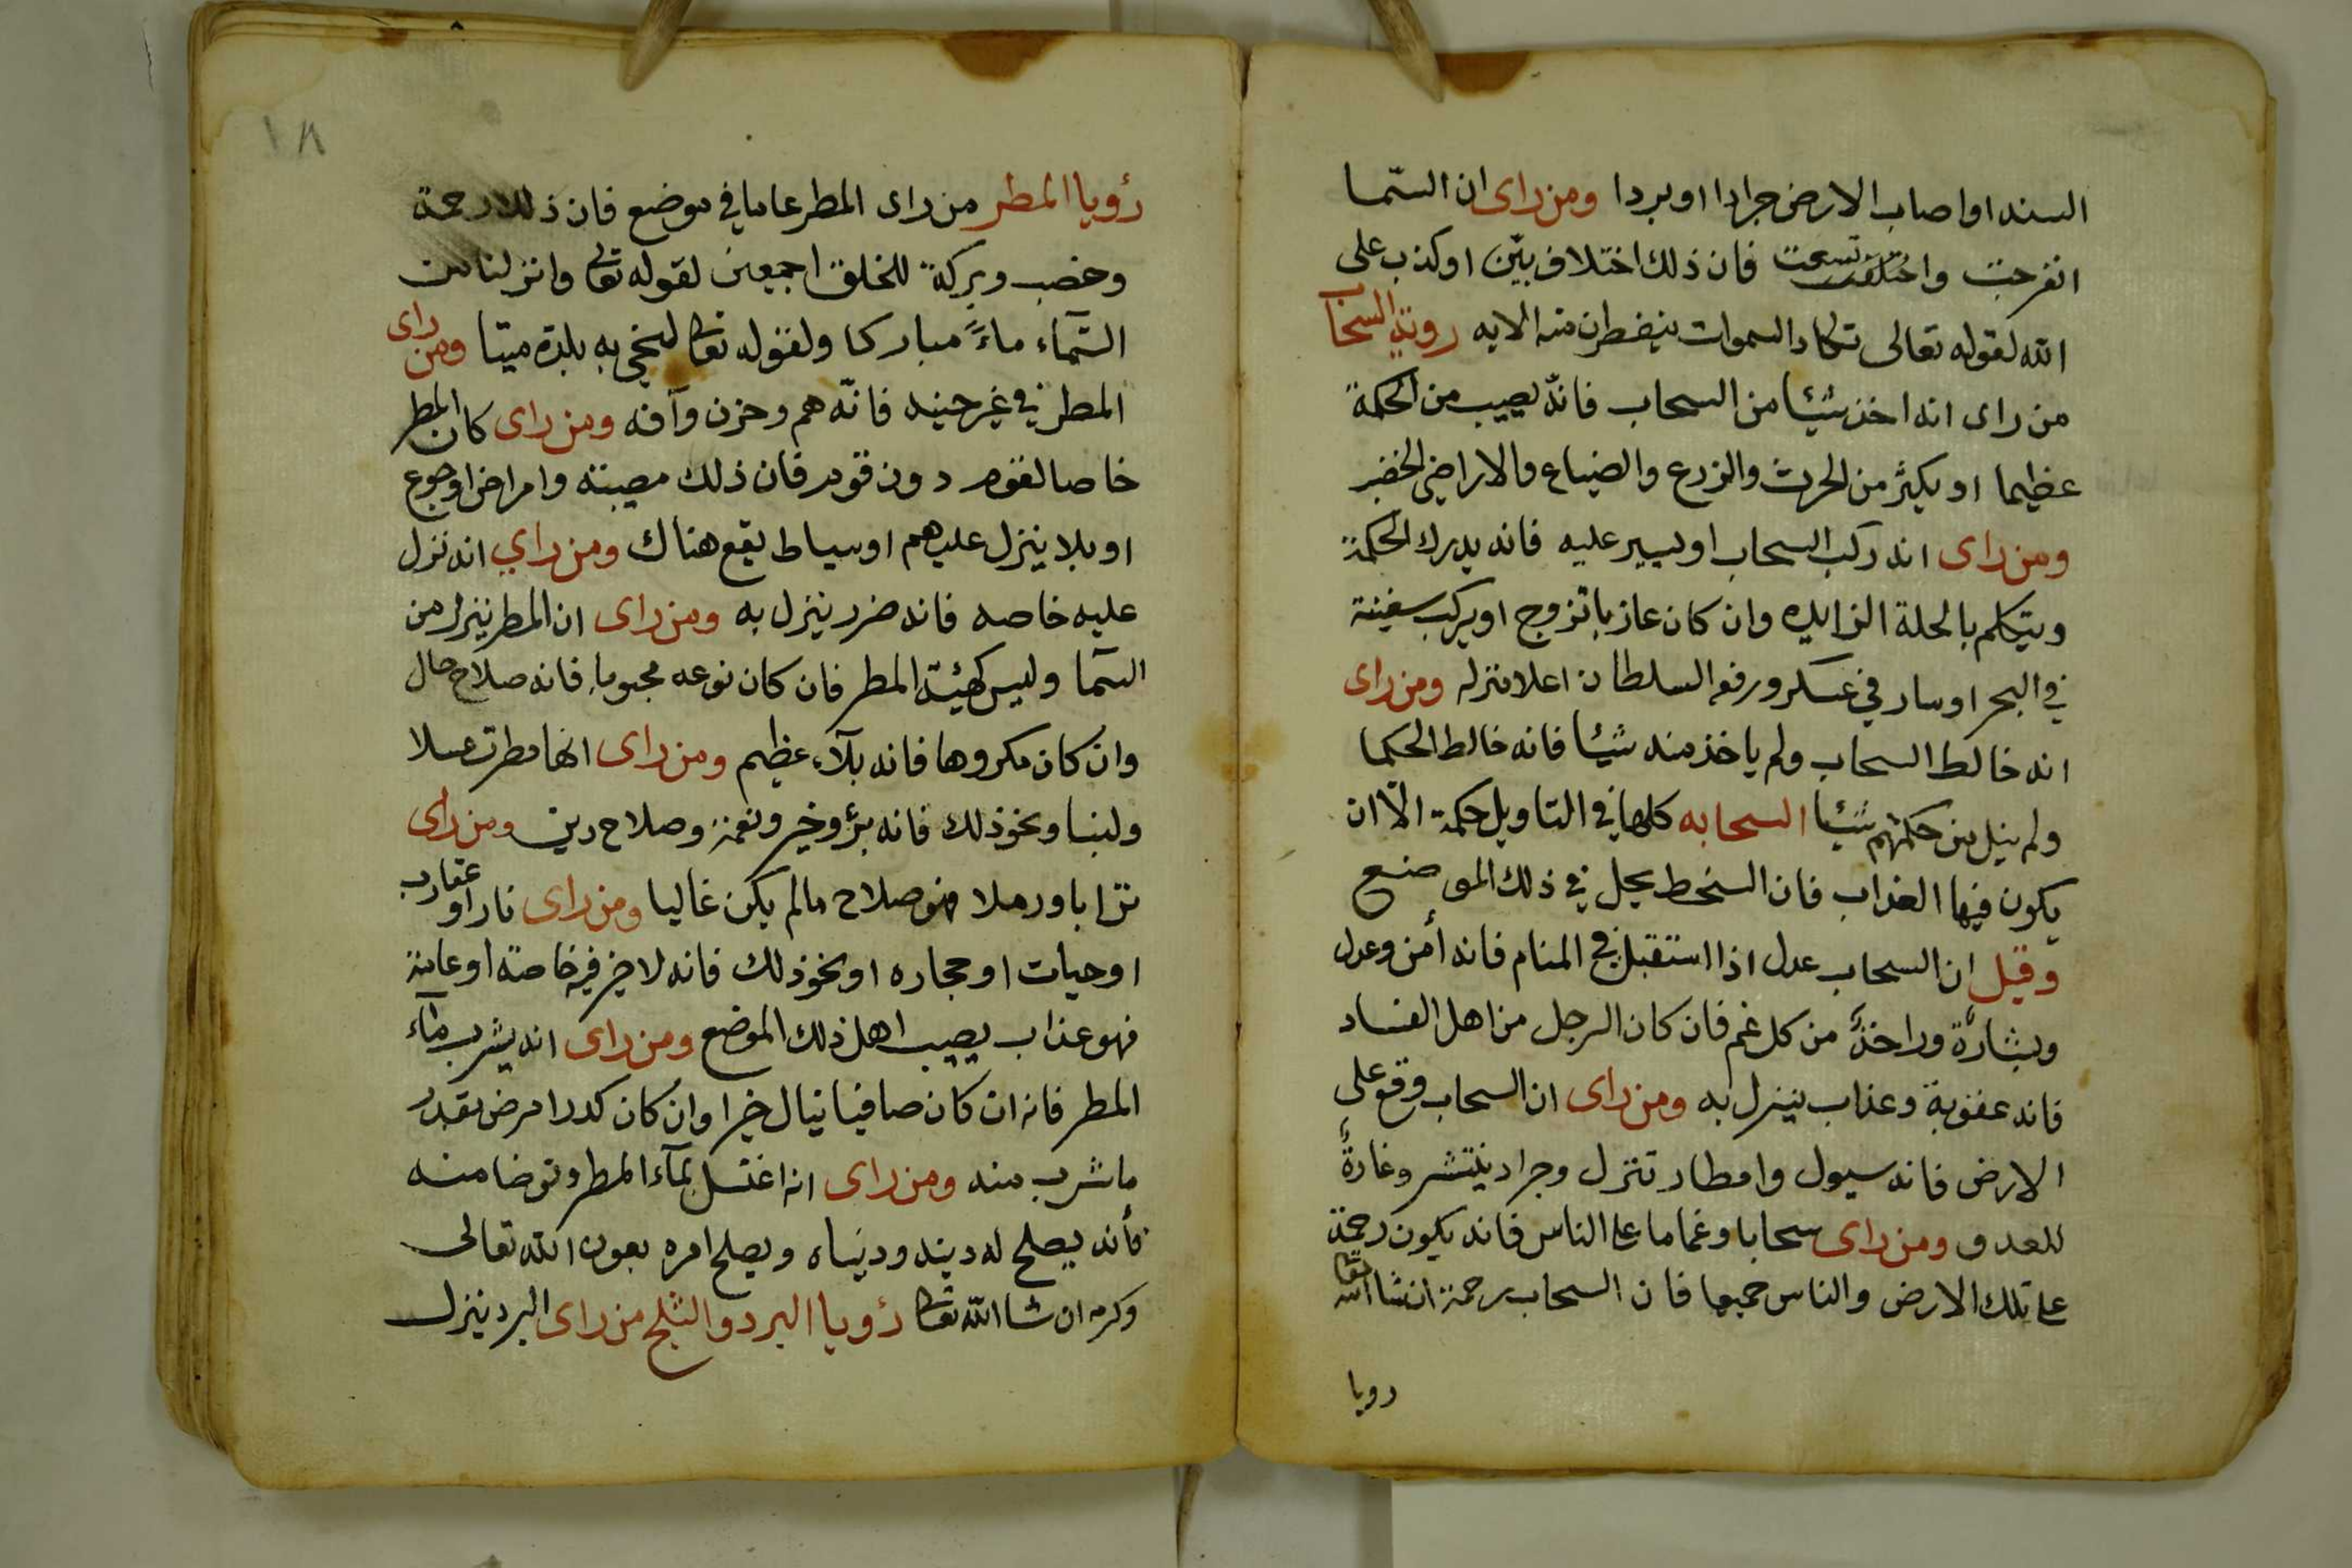 السنه او اصاب الارض جرادا او بردا ومن راى ان السّما
انفرجت واختلفت فان ذلك اختلاف بيّن او كذب على
الله لقوله تعالى تكاد السموات ينفطرن منه الايه روية السحاب
من راى انه اخذ شيئا من السحاب فانّه يصيب من الحكمة
عظيما او يكثر من الحرث والزرع والضياع والاراضي الخضر
ومن راى انه ركب السحاب او يسير عليه فانه يدرك الحكمة
ويتكلم بالحلة الزايده وان كان عازبا تزوج او يركب سفينة
في البحر او سار في عسكر ورفعه السلطان اعلا منزله ومن راى
انه خالط السحاب ولم ياخذ منه شيئا فانه خالط الحكما
ولم ينل من حكمتهم شيئا السحابه كلها في التاويل حكمة الّا ان
يكون فيها العذاب فان السخط يحل في ذلك الموضع
وقيل ان السحاب عدل اذا استقبل في المنام فانه أمن وعدل
وبشارة وراحة من كل غم فان كان الرجل من اهل الفساد
فانه عقوبة وعذاب ينزل به ومن راى ان السحاب وقع على
الارض فانه سيول وامطار تنزل وجراد ينتشر وغارة
للعدو ومن راى سحابا وغماما على الناس فانه يكون رحمة
على تلك الارض والناس جميعا فان السحاب رحمة انشا الله تعا
رويا
١٨
رؤيا المطر من راى المطر عاما في موضع فان ذلك رحمة
وخصب وبركة للخلق اجمعين لقوله تعالى وانزلنا من
السّمآء ماءً مباركا ولقوله تعا لنحيي به بلدة ميتا ومن راى
المطر في غير حينه فانّه هم وحزن وآفه ومن راى كان المطر
خاصا لقوم دون قوم فان ذلك مصيبته وامراض اوجوع
او بلا ينزل عليهم او سياط يقع هناك ومن راي انه نزل
عليه خاصه فانه ضرر ينزل به ومن راى ان المطر ينزل من
السّما وليس كهيئة المطر فان كان نوعه محبوبا فانه صلاح حال
وان كان مكروها فانه بلآء عظيم ومن راى انها مطرت عسلا
ولبنا ونحو ذلك فانه برّ وخير ونعمة وصلاح دين ومن راى
ترابا ورملا فهو صلاح مالم يكن غالبا ومن راى نارا او عقارب
او حيات او حجاره او نحو ذلك فانه لا خير فيه خاصته او عامة
فهو عذاب يصيب اهل ذلك الموضع ومن راى انه يشرب مآء
المطر فانه ان كان صافيا نيال خيرا وان كان كدرا مرض بقدر
ما شرب منه ومن راى انه اغتسل بمآء المطر وتوضا منه
فأنه يصلح له دينه ودنياه ويصلح امره بعون الله تعالى
وكرمه ان شا الله تعا رؤيا البرد والثلج من راى البرد ينزل